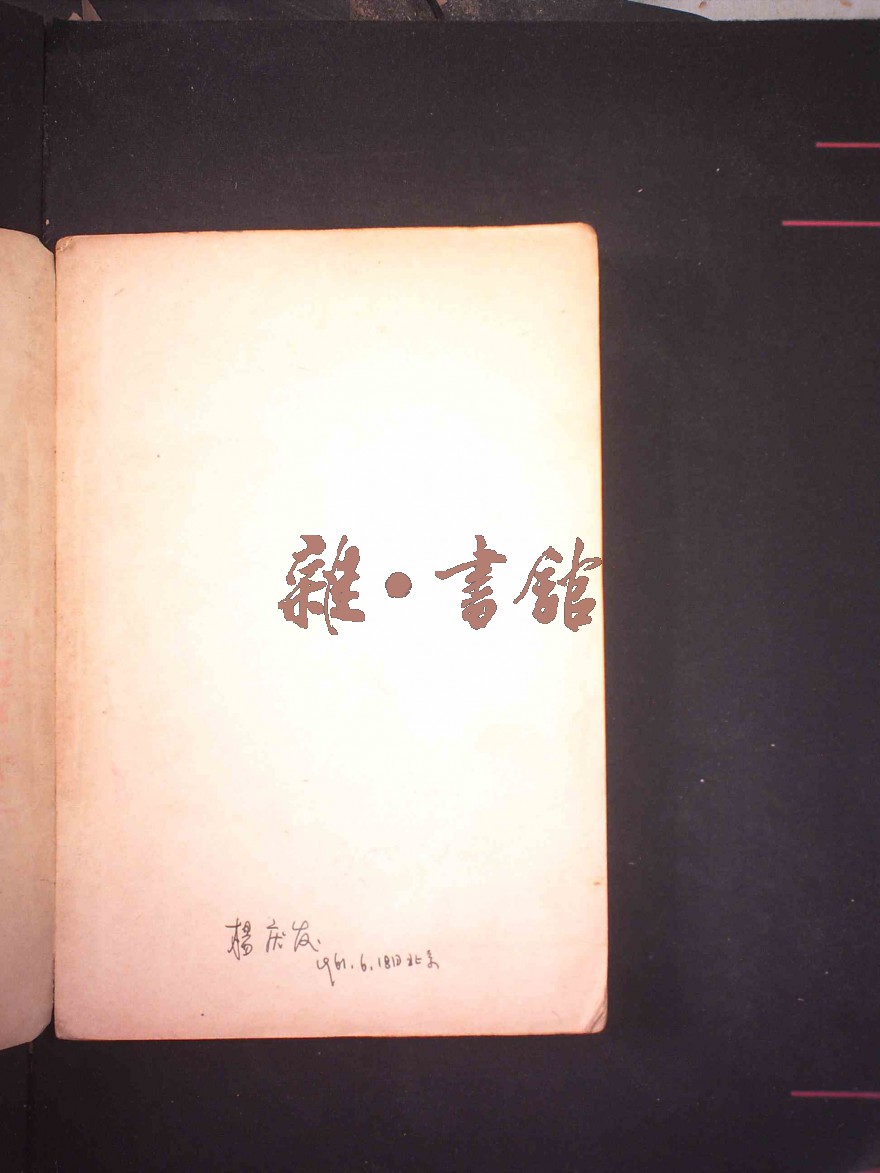 雜·書館
楊庆发
1961.6.18日北京